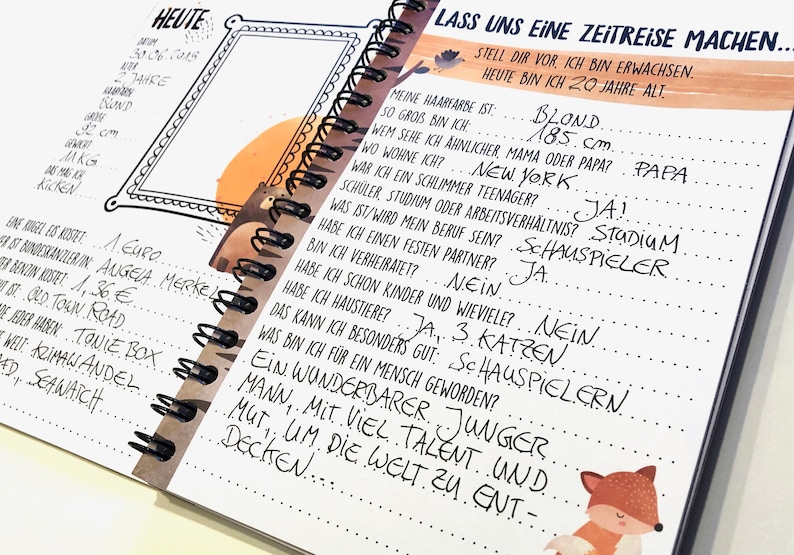 HEUTE
DATUM
30.06.2019
ALTER
2 JAHRE
HAARFARBE
BLOND
GRÖSSE
92 cm
GEWICHT
11 KG
DAS MAG ICH
KICKEN
EINE KUGEL EIS KOSTET: 1 EURO
ER IST BUNDESKANZLER/IN: ANGELA MERKEL
ER BENZIN KOSTET: 1,36 €
UT IST: OLD TOWN ROAD
DE JEDER HABEN: TONIE BOX
E WELT: KLIMAWANDEL
SEAWATCH
LASS UNS EINE ZEITREISE MACHEN...
STELL DIR VOR, ICH BIN ERWACHSEN.
HEUTE BIN ICH 20 JAHRE ALT.
MEINE HAARFARBE IST: BLOND
SO GROß BIN ICH: 185 cm
WEM SEHE ICH ÄHNLICHER, MAMA ODER PAPA? PAPA
WO WOHNE ICH? NEW YORK
WAR ICH EIN SCHLIMMER TEENAGER? JA!
SCHÜLER, STUDIUM ODER ARBEITSVERHÄLTNIS? STUDIUM
WAS IST/WIRD MEIN BERUF SEIN? SCHAUSPIELER
HABE ICH EINEN FESTEN PARTNER? JA
BIN ICH VERHEIRATET? NEIN
HABE ICH SCHON KINDER UND WIEVIELE? NEIN
HABE ICH HAUSTIERE? JA, 3 KATZEN
DAS KANN ICH BESONDERS GUT: SCHAUSPIELERN
WAS BIN ICH FÜR EIN MENSCH GEWORDEN?
EIN WUNDERBARER JUNGER
MANN, MIT VIEL TALENT UND
MUT, UM DIE WELT ZU ENT-
DECKEN...